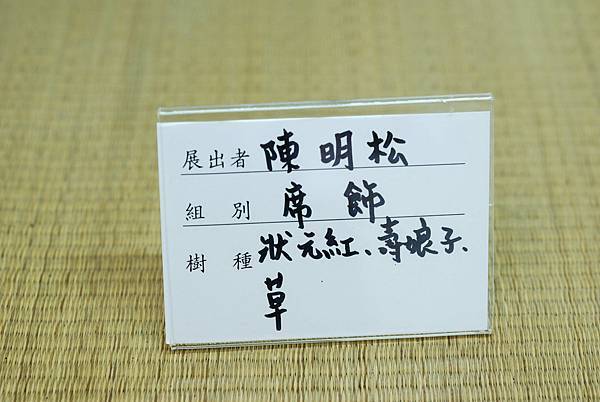 展出者 陳明松
組別 席飾
樹種 狀元紅、壽娘子、
草